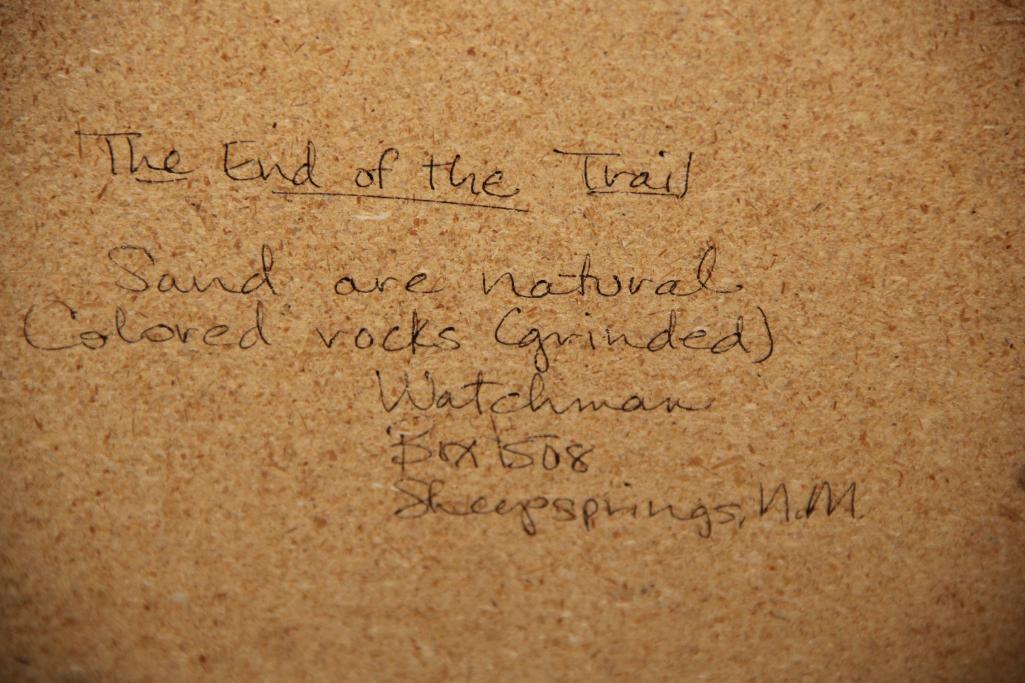 The End of the Trail
Sand are natural
Colored rocks (grinded)
Watchman
Box 1508
Sheepsprings, N.M.